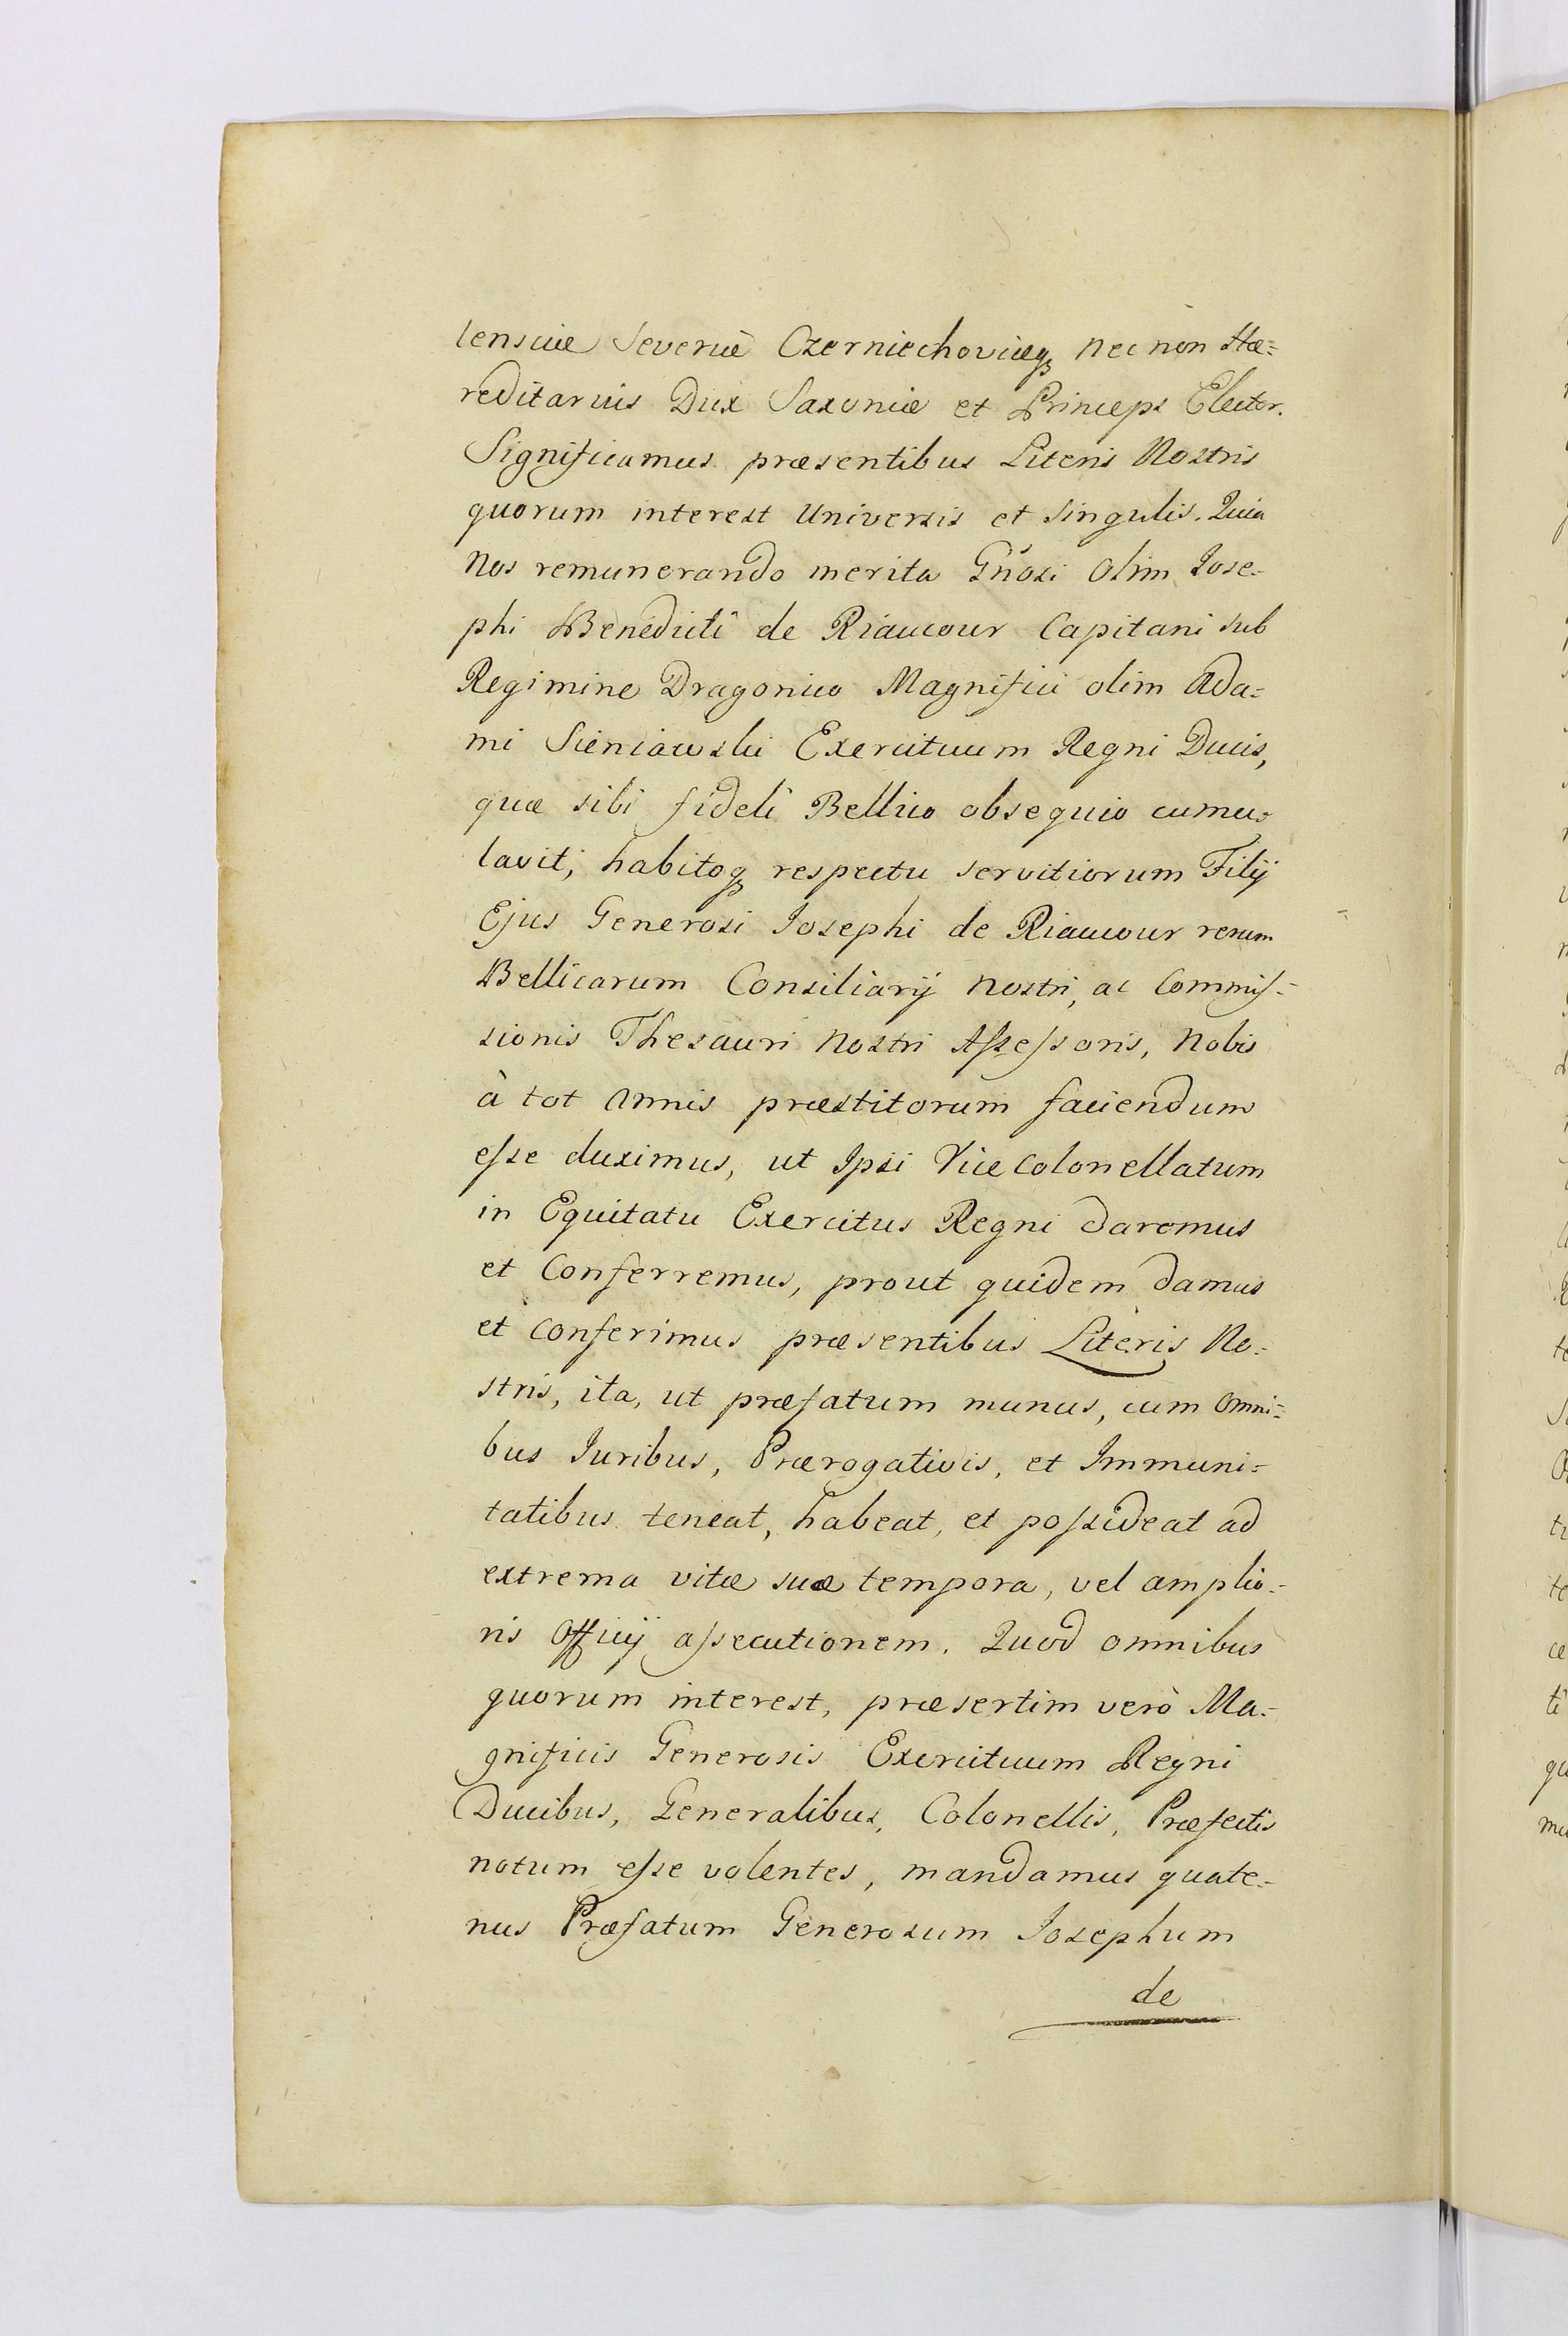 lensciæ Severiæ Czerniechoviæq₃ nec non Hæ=
reditarius Dux Saxoniæ et Princeps Elector.
Significamus præsentibus Literis Nostris
quorum interest Universis et singulis. Quia
Nos remunerando merita Gñosi olim Jose-
phi Benedicti de Riaucour Capitani sub
Regimine Dragonico Magnifici olim Ada=
mi Sieniawski Exercituum Regni Ducis,
quæ sibi fideli Bellico obsequio cumu-
lavit; habitoq₃ respectu servitiorum Filÿ
Ejus Generosi Josephi de Riaucour rerum
Bellicarum Consiliarÿ Nostri, ac Commiſ=
sionis Thesauri Nostri Aſseſsoris, Nobis
à tot annis præstitorum faciendum
eſse duximus, ut Ipsi Vice Colonellatum
in Equitatu Exercitus Regni daremus
et Conferremus, prout quidem damus
et conferimus præsentibus Literis No=
stris, ita, ut præfatum munus, cum omni=
bus Juribus, Prærogativis, et Immuni=
tatibus teneat, habeat, et poſsideat ad
extrema vitæ suæ tempora, vel amplio=
ris Officÿ aſsecutionem. Quod omnibus
quorum interest, præsertim verò Ma=
gnificis Generosis Exercituum Regni
Ducibus, Generalibus, Colonellis, Præfectis
notum eſse volentes, mandamus quate=
nus Præfatum Generosum Josephum
de